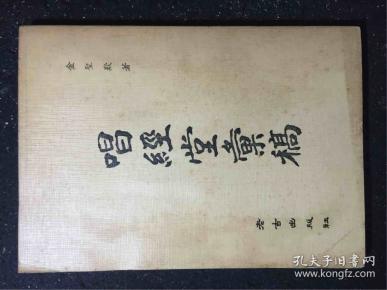 金聖歎著
唱經堂彙稿
老古出版社
孔夫子旧书网
www.kongfz.com